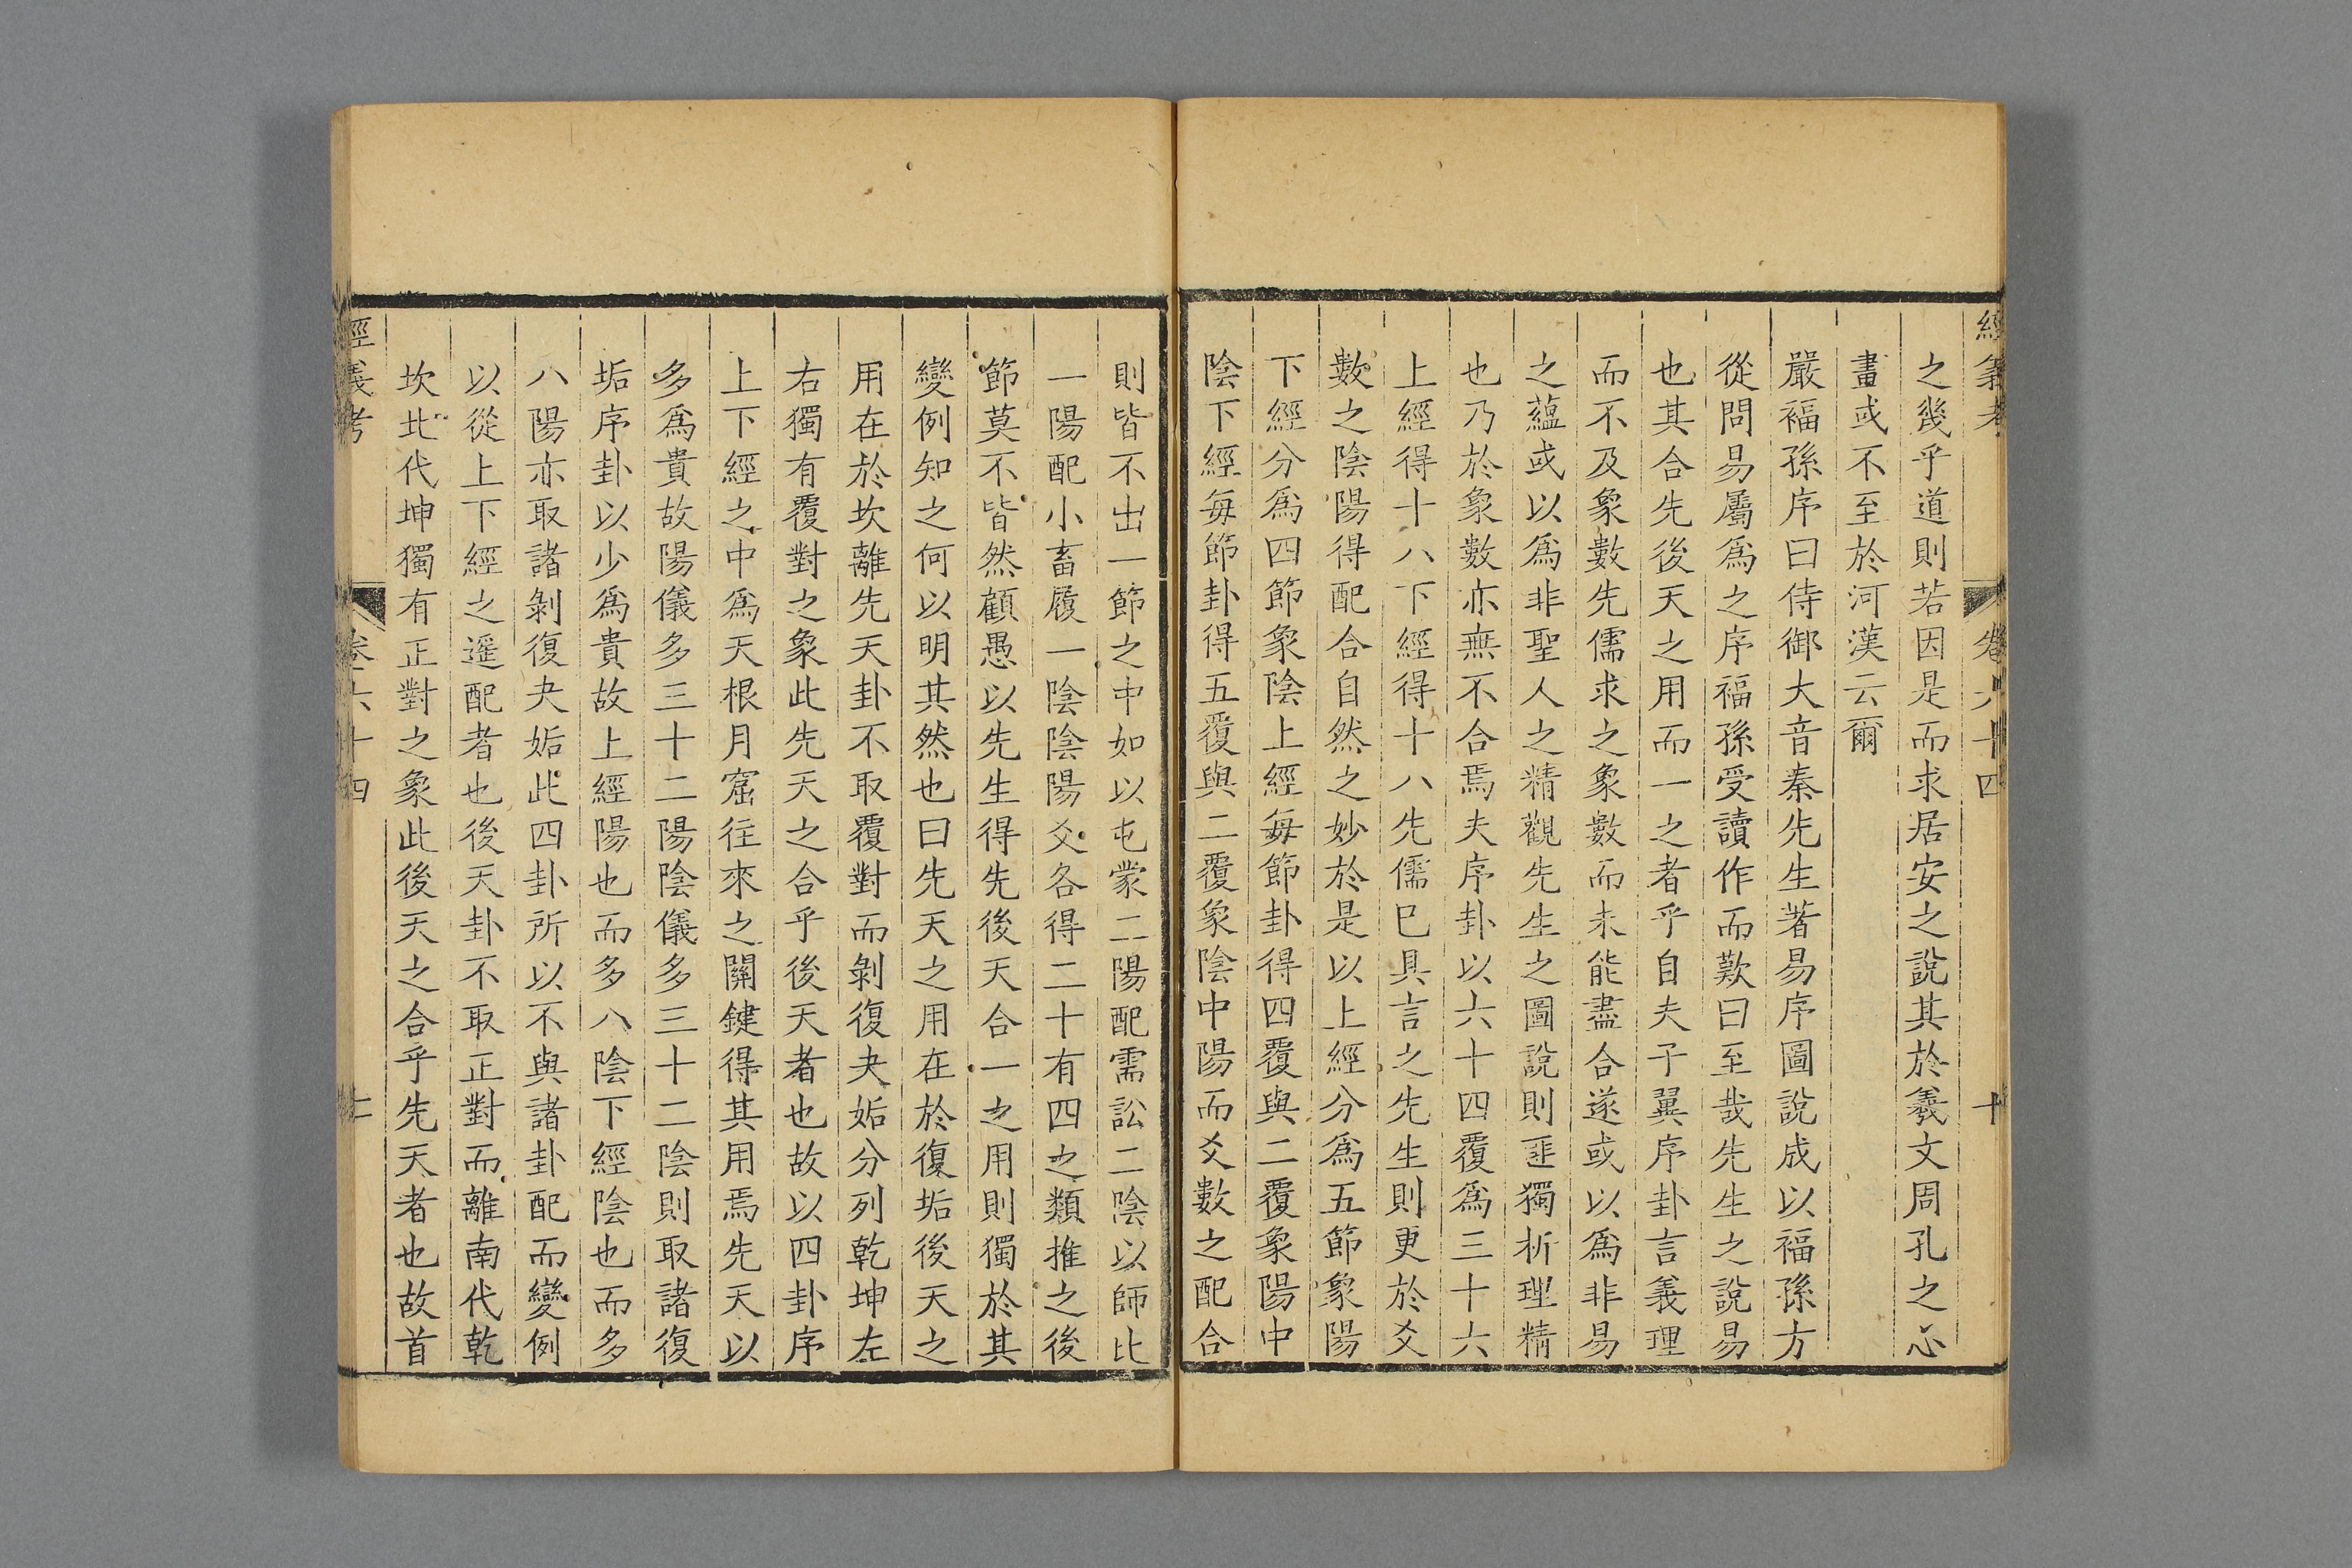 經義考
卷六十四
十
之幾乎道則若因是而求居安之說其於羲文周孔之心
畫或不至於河漢云爾
嚴福孫序曰侍御大音秦先生著易序圖說成以福孫方
從問易屬爲之序福孫受讀作而歎曰至哉先生之說易
也其合先後天之用而一之者乎自夫子翼序卦言義理
而不及象數先儒求之象數而未能盡合遂或以爲非易
之蘊或以爲非聖人之精觀先生之圖說則匪獨析理精
也乃於象數亦無不合焉夫序卦以六十四覆爲三十六
上經得十八下經得十八先儒已具言之先生則更於爻
數之陰陽得配合自然之妙於是以上經分爲五節象陽
下經分爲四節象陰上經每節卦得四覆與二覆象陽中
陰下經每節卦得五覆與二覆象陰中陽而爻數之配合
則皆不出一節之中如以屯蒙二陽配需訟二陰以師比
一陽配小畜履一陰陰陽爻各得二十有四之類推之後
節莫不皆然顧愚以先生得先後天合一之用則獨於其
變例知之何以明其然也曰先天之用在於復垢後天之
用在於坎離先天卦不取覆對而剝復夬姤分列乾坤左
右獨有覆對之象此先天之合乎後天者也故以四卦序
上下經之中爲天根月窟往來之關鍵得其用焉先天以
多爲貴故陽儀多三十二陽陰儀多三十二陰則取諸復
垢序卦以少爲貴故上經陽也而多八陰下經陰也而多
八陽亦取諸剝復夬姤此四卦所以不與諸卦配而變例
以從上下經之遥配者也後天卦不取正對而離南代乾
坎北代坤獨有正對之象此後天之合乎先天者也故首
經義考
卷六十四